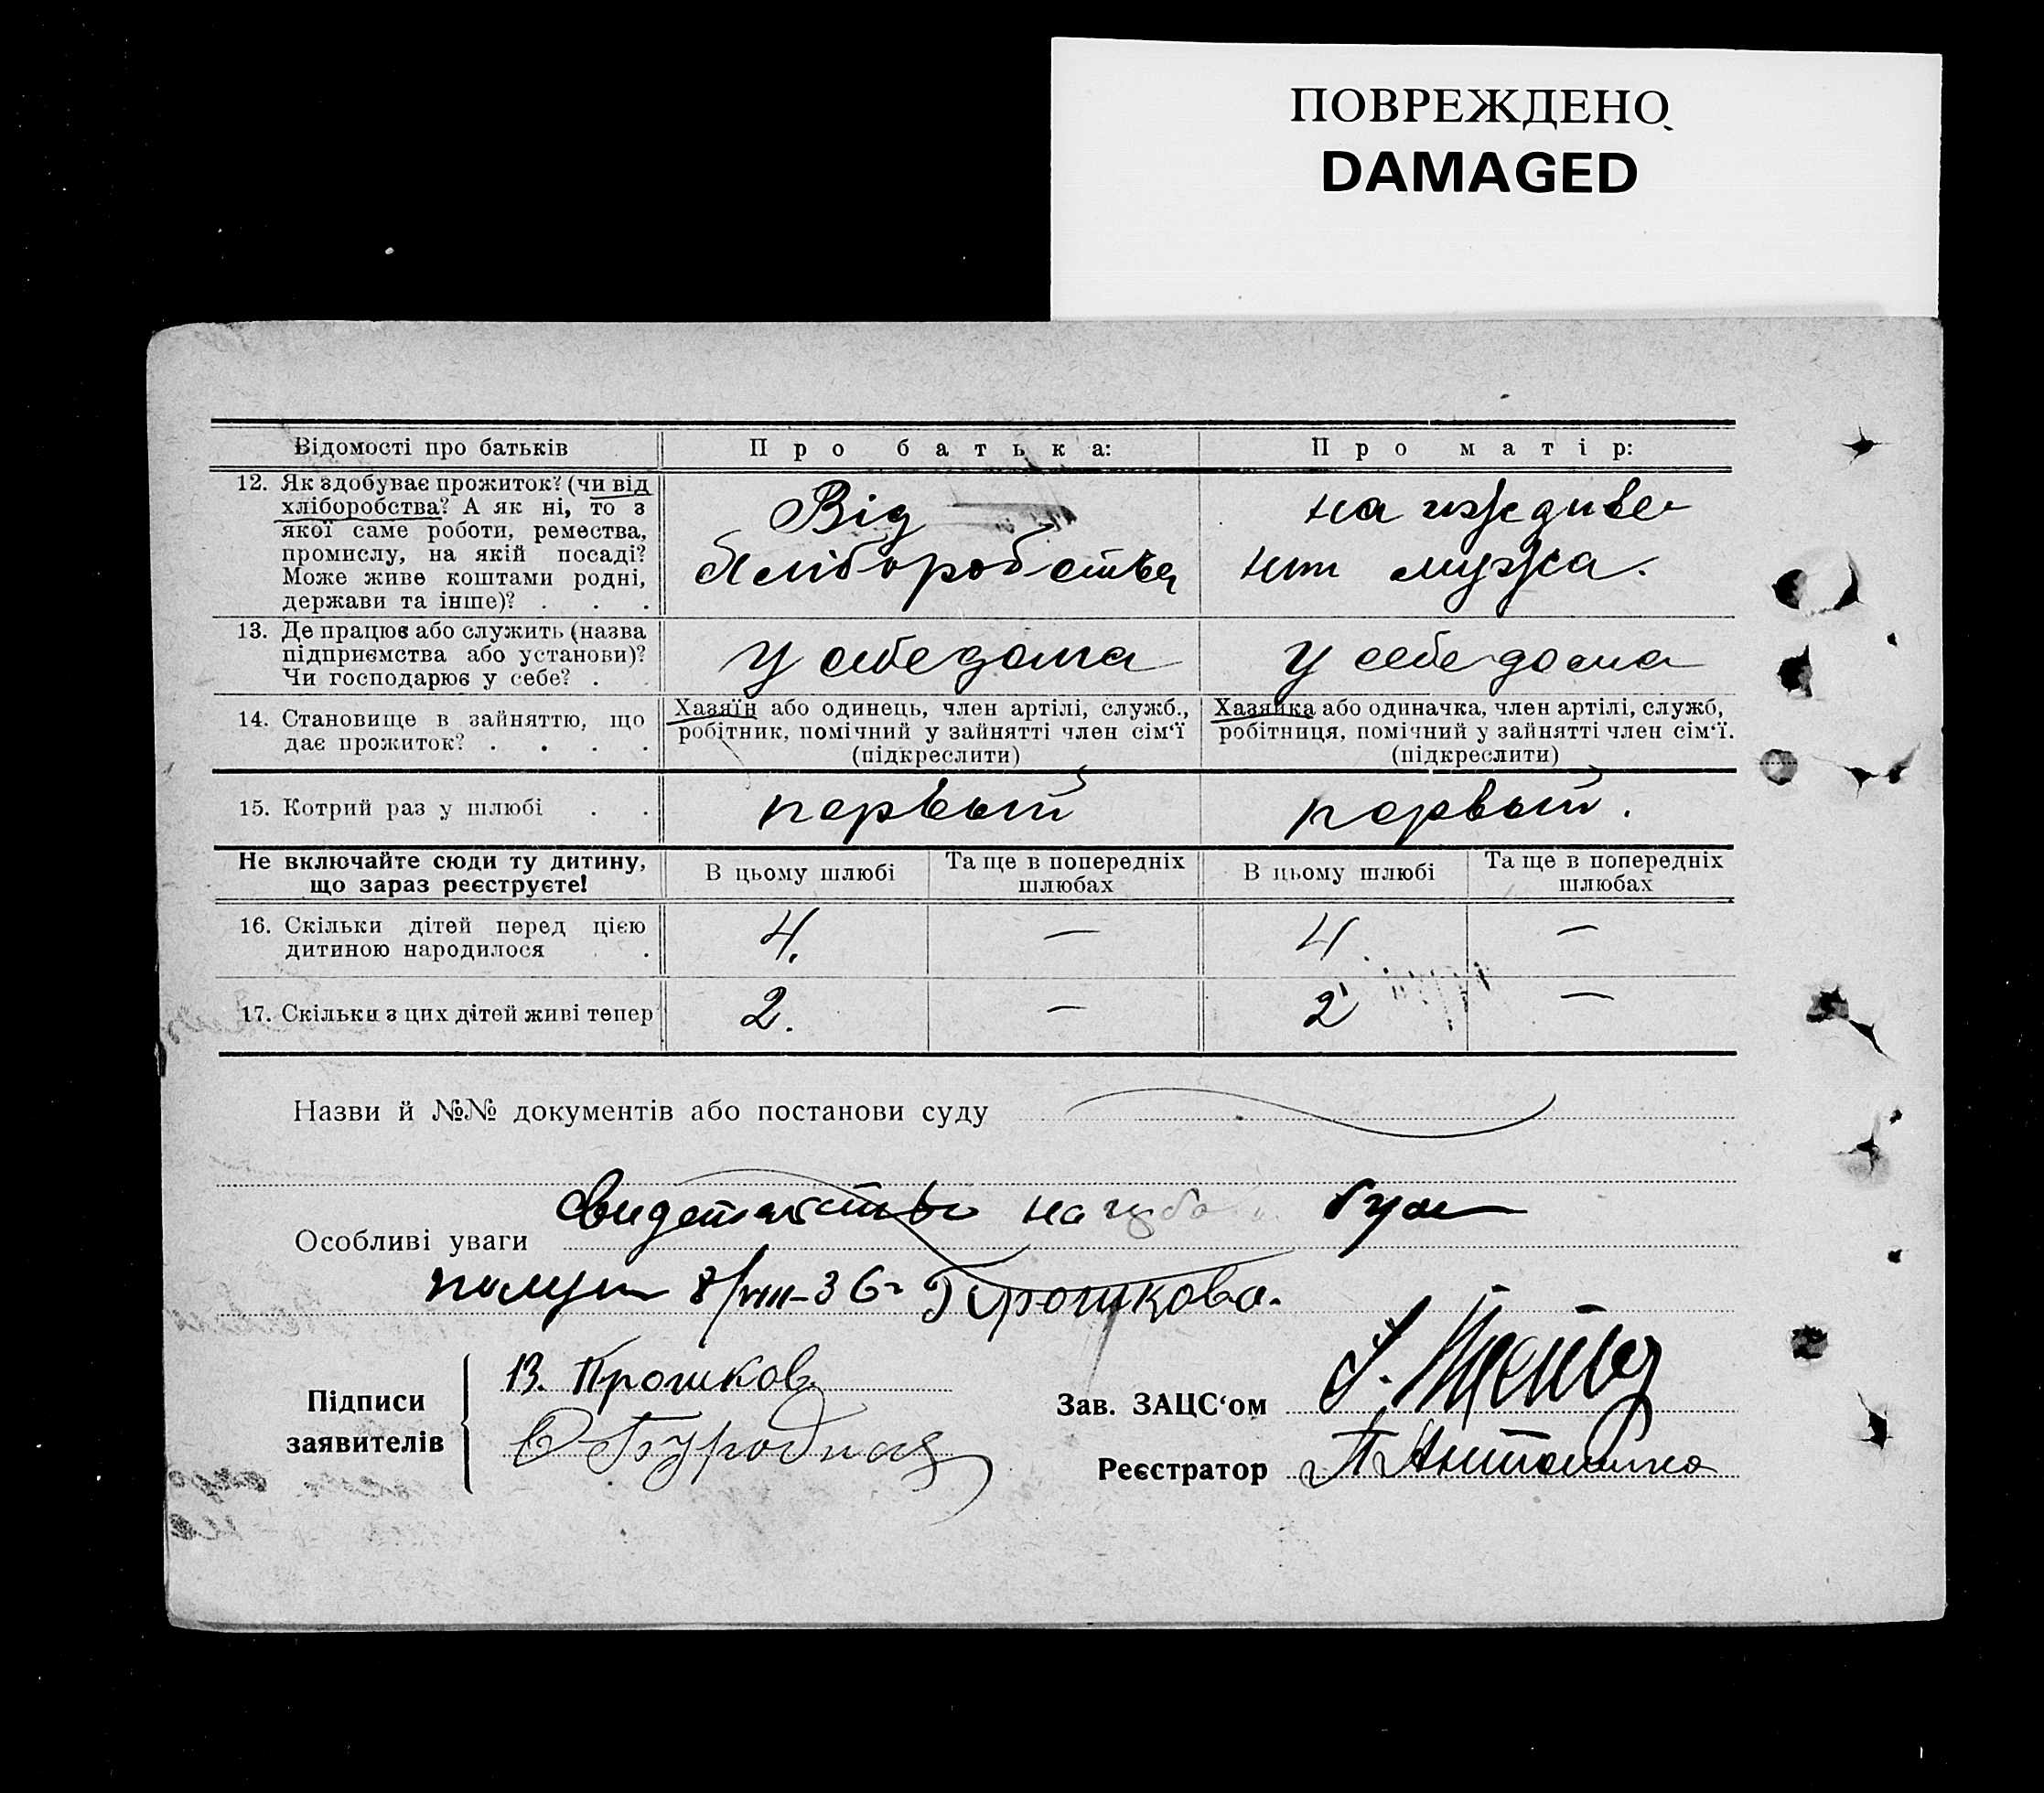 ПОВРЕЖДЕНО
DAMAGED
Відомості про батьків
Про батька:
Про матір:
12. Як здобуває прожиток? (чи від
хліборобства? А як ні, то з
якої саме роботи, ремества,
промислу, на якій посаді?
Може живе коштами родні,
держави та інше)? . . .
Від
хліборобства
на иждиве
нии мужа.
13. Де працює або служить (назва
підприємства або установи)?
Чи господарює у себе? .
У себе дома
У себе дома
14. Становище в зайняттю, що
дає прожиток? . . . .
Хазяїн або одинець, член артілі, служб.,
робітник, помічний у зайнятті член сім‘ї
(підкреслити)
Хазяйка або одиначка, член артілі, служб,
робітниця, помічний у зайнятті член сім‘ї.
(підкреслити)
15. Котрий раз у шлюбі . .
первый
первый.
Не включайте сюди ту дитину,
що зараз реєструєте!
В цьому шлюбі
Та ще в попередніх
шлюбах
В цьому шлюбі
Та ще в попередніх
шлюбах
16. Скільки дітей перед цією
дитиною народилося .
4.
—
4.
—
17. Скільки з цих дітей живі тепер
2.
—
2
—
Назви й №№ документів або постанови суду
Особливі уваги
8/VIII-36г Прошкова.
Підписи
заявителів
В. Прошков
Зав. ЗАЦС‘ом
Реєстратор